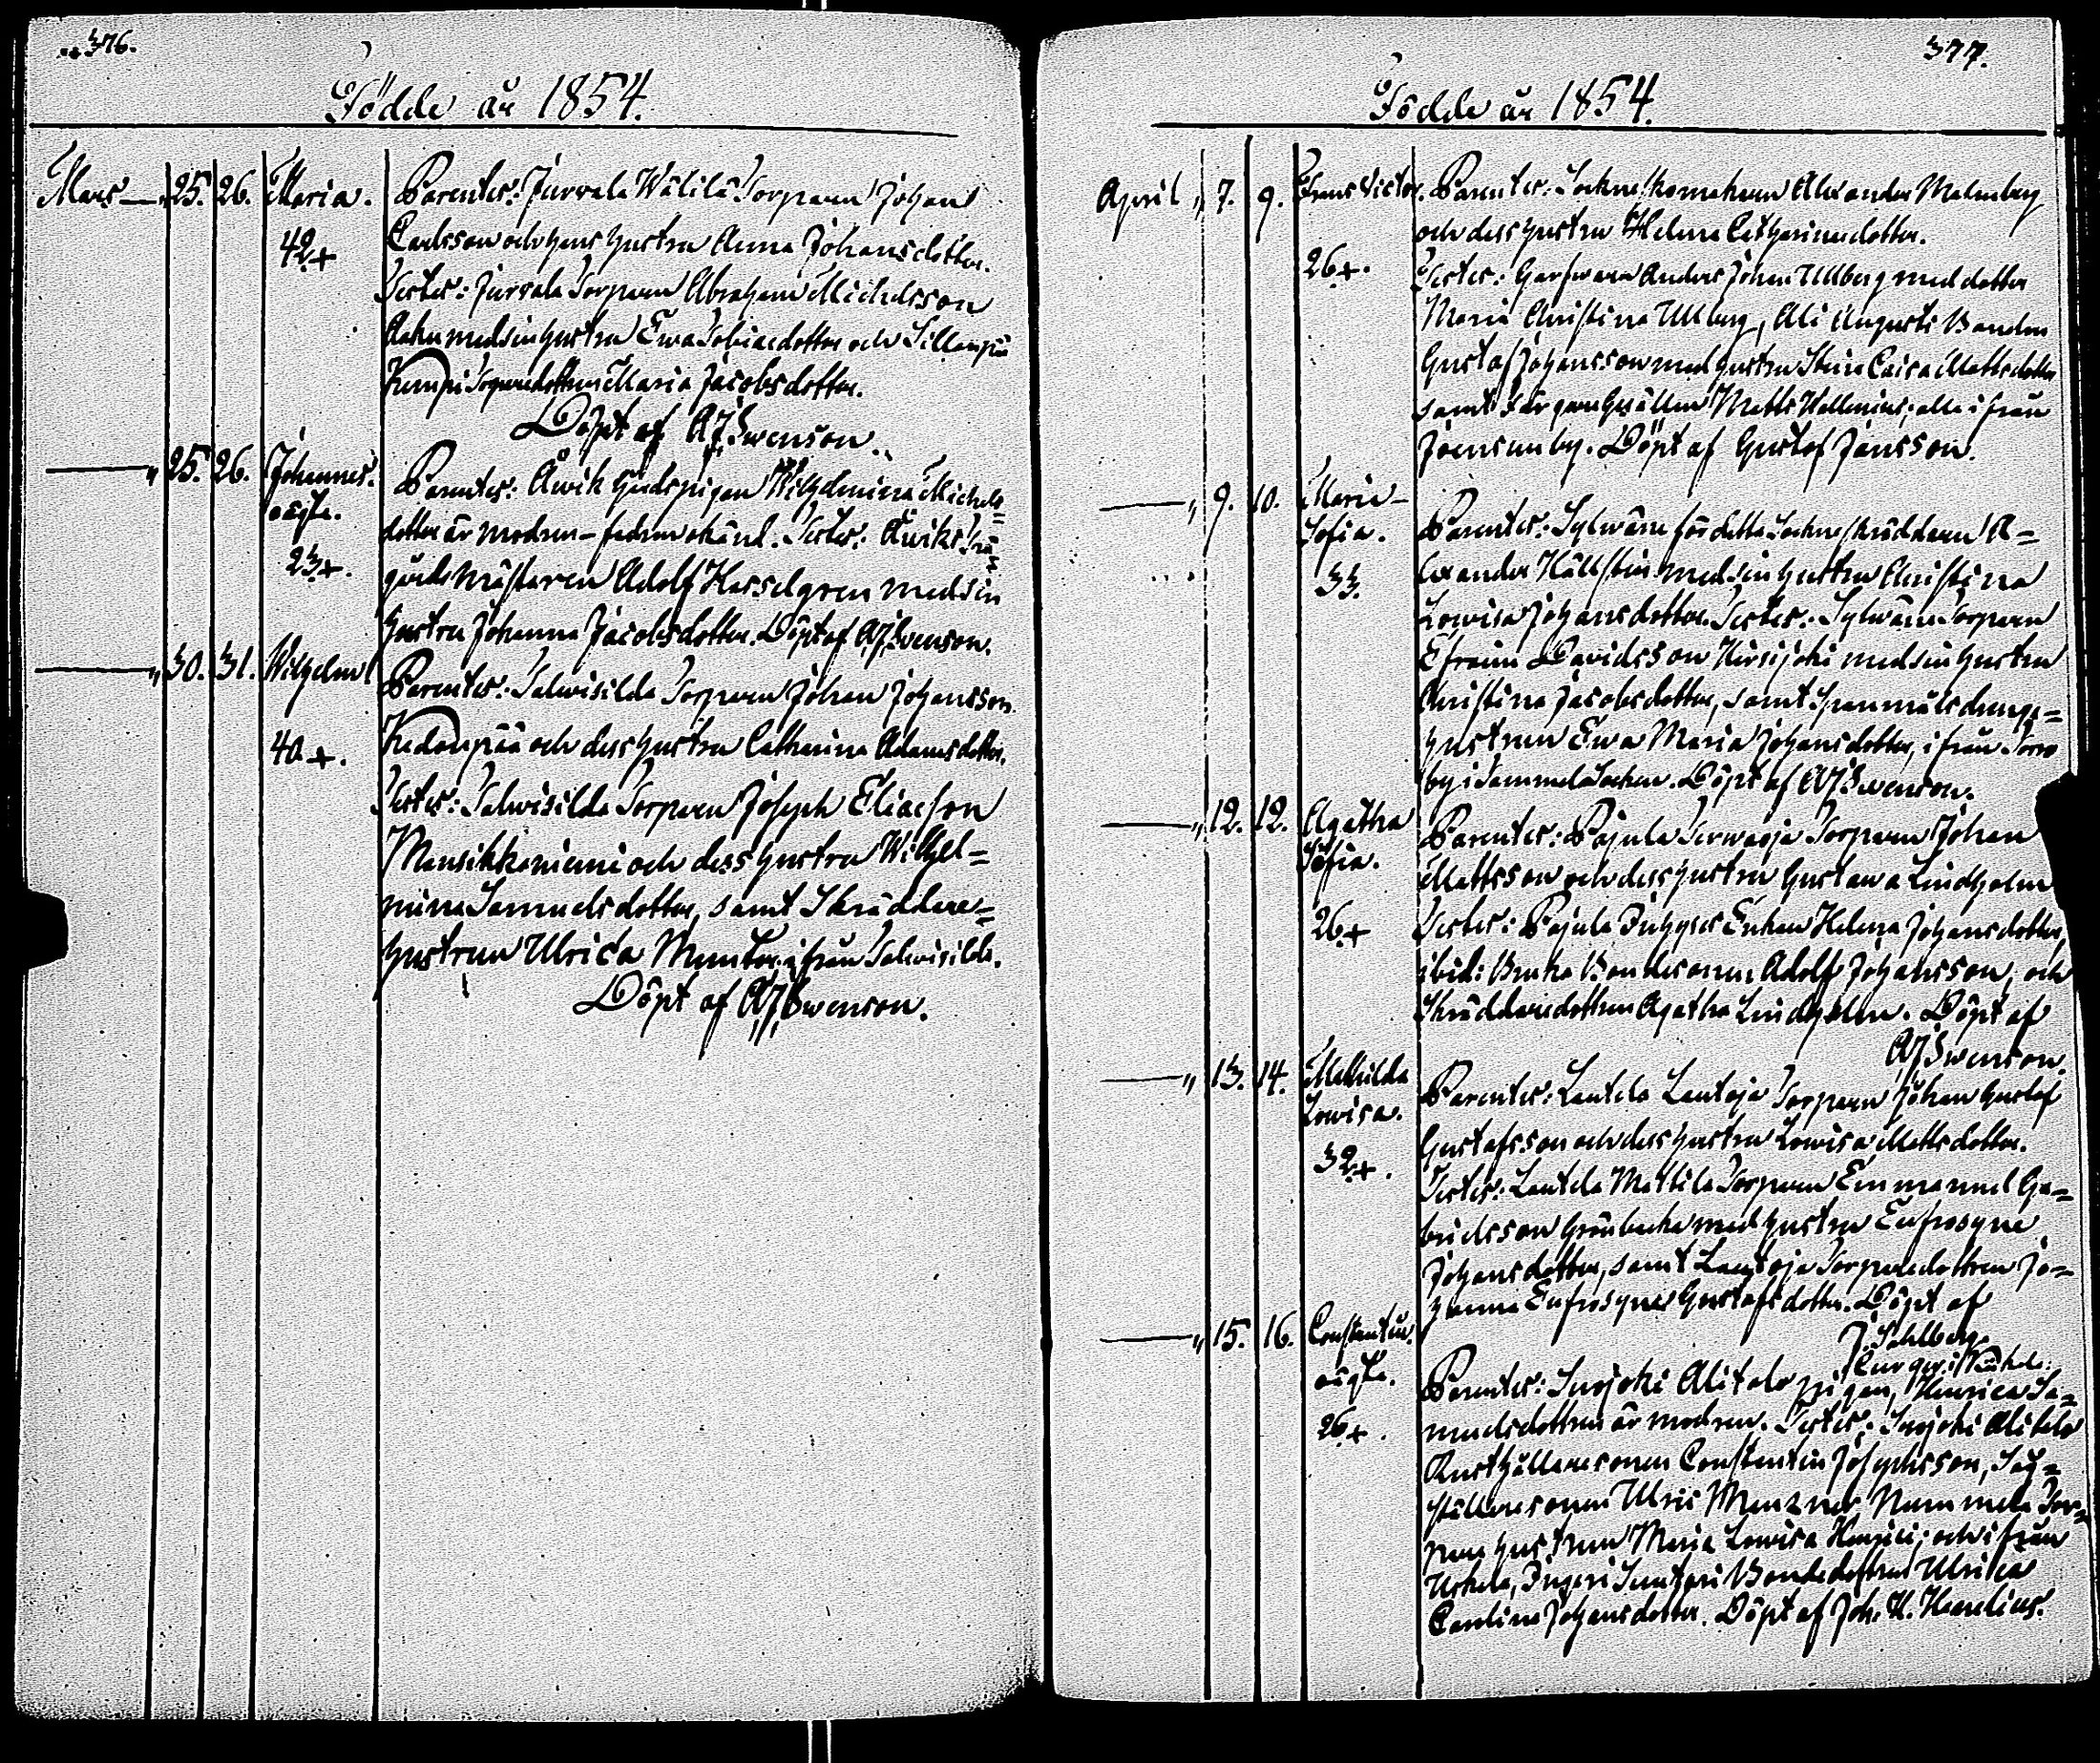 376.
Födde år 1854.
Mars — „ 25. 26. Maria. Parenter: Jurvala Wälilä Torparen Johan
42+ Carlsson och hans hustru Anna Johansdotter.
Testes: Jurvala Torparen Abraham Michelsson
med sin hustru Ewa Tobiaedotter och Sillanpää
Kumpi Torparedottren Maria Jacobsdotter.
Döpt af A J Swenson.
— „ 25. 26. Johannes. Parenter: Åwik Gårdspigan Wilhelmina Michels=
oägta. dotter är modren – fadren okänd. Testes: Åwiks Trä=
23+. gårds Mästaren Adolf Hasselgren med sin
hustru Johanna Jacobsdotter. Döpt af A J Swenson.
— „ 30. 31. Wilhelm Parenter: Talwisilda Torparen Johan Johansson
40+. Kedonpää och dess hustru Catharina Adamsdotter.
Testes: Talwisilda Torparen Joseph Eliasson
Mansikkaniemi och dess hustru Wilhel=
mina Samuelsdotter, samt Skräddare=
hustrun Ulrica Munter ifrån Talwisilda.
Döpt af A J Swenson.
377.
Födde år 1854.
April „ 7. 9. Frans Victor. Parenter: Sockneskomakaren Alexander Malmberg
och dess hustru Helena Catharinadotter.
26+. Testes: Garfwaren Anders Johan Ullberg med dotter
Maria Christina Ullberg, Ali Augusti Bonden
Gustaf Johansson med hustru Stina Caisa Mattsdotter
samt Färgaregesällen Matts Hellenius; alla ifrån
Joensuu by. Döpt af Gustaf Jansson.
— „ 9. 10. Maria
Sofia. Parenter: Sylwäna för detta Sockneskräddaren A=
33. lexander Hällsten med sin hustru Christina
Lowisa Johansdotter. Testes: Sylwäna Torparen
Efraim Davidsson Hirsijoki med sin hustru
Christina Jacobsdotter, samt
hustrun Ewa Maria Johansdotter, ifrån
by i Sammola Socken. Döpt af A J Swenson.
— „ 12. 12. Agatha Parenter: Pajula Torparen Johan
Sofia. Mattsson och dess hustru Gustawa Lindholm
26+ Testes: Pajula Enkan Helena Johansdotter,
ibid: Bondesonen Adolf Johansson, och
Skräddaredottren Agatha Lindholm. Döpt af
A J Swenson.
— „ 13. 14. Mathilda Parenter: Lautela Lautoja Torparen Johan Gustaf
Lowisa. Gustafsson och dess hustru Lowisa Mattsdotter.
32+. Testes: Lautela Mattila Torparen Emmanuel Ga=
brielsson Grönbacka med hustru Eufrosyne
Johansdotter, samt Lautoja Torparedottren Jo=
hanna Eufrosyne Gustafsdotter. Döpt af
J. Sahlberg.
— „ 15. 16. Constantin.
oägta. Parenter: Suojoki Alitalo pigan, Henrica Sa=
26+. muelsdottren är modren. Testes: Suojoki Alitalo
Rusthållaresonen Constantin Josephsson, Sex=
ställaresonen Ulric Menzner Nummela Tor=
pare hustrun Maria Lowisa Henrici; och ifrån
Uskela, Suutari Bondedottren Ulrica
Carolina Johansdotter. Döpt af Joh. H. Henelius.